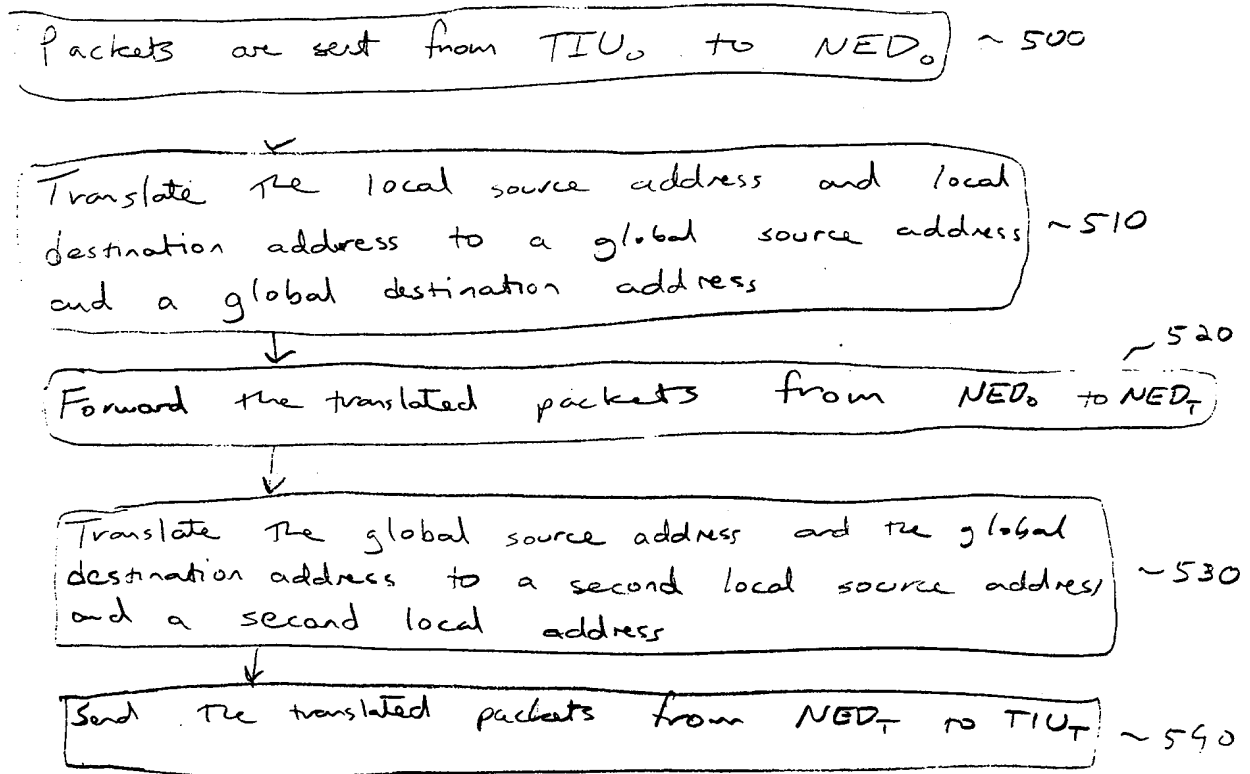 Packets are sent from TIU₀ to NED₀ ~ 500
Translate the local source address and local
destination address to a global source address ~ 510
and a global destination address
~ 520
Forward the translated packets from NED₀ to NED_T
Translate the global source address and the global
destination address to a second local source address ~ 530
and a second local address
Send the translated packets from NED_T to TIU_T ~ 540